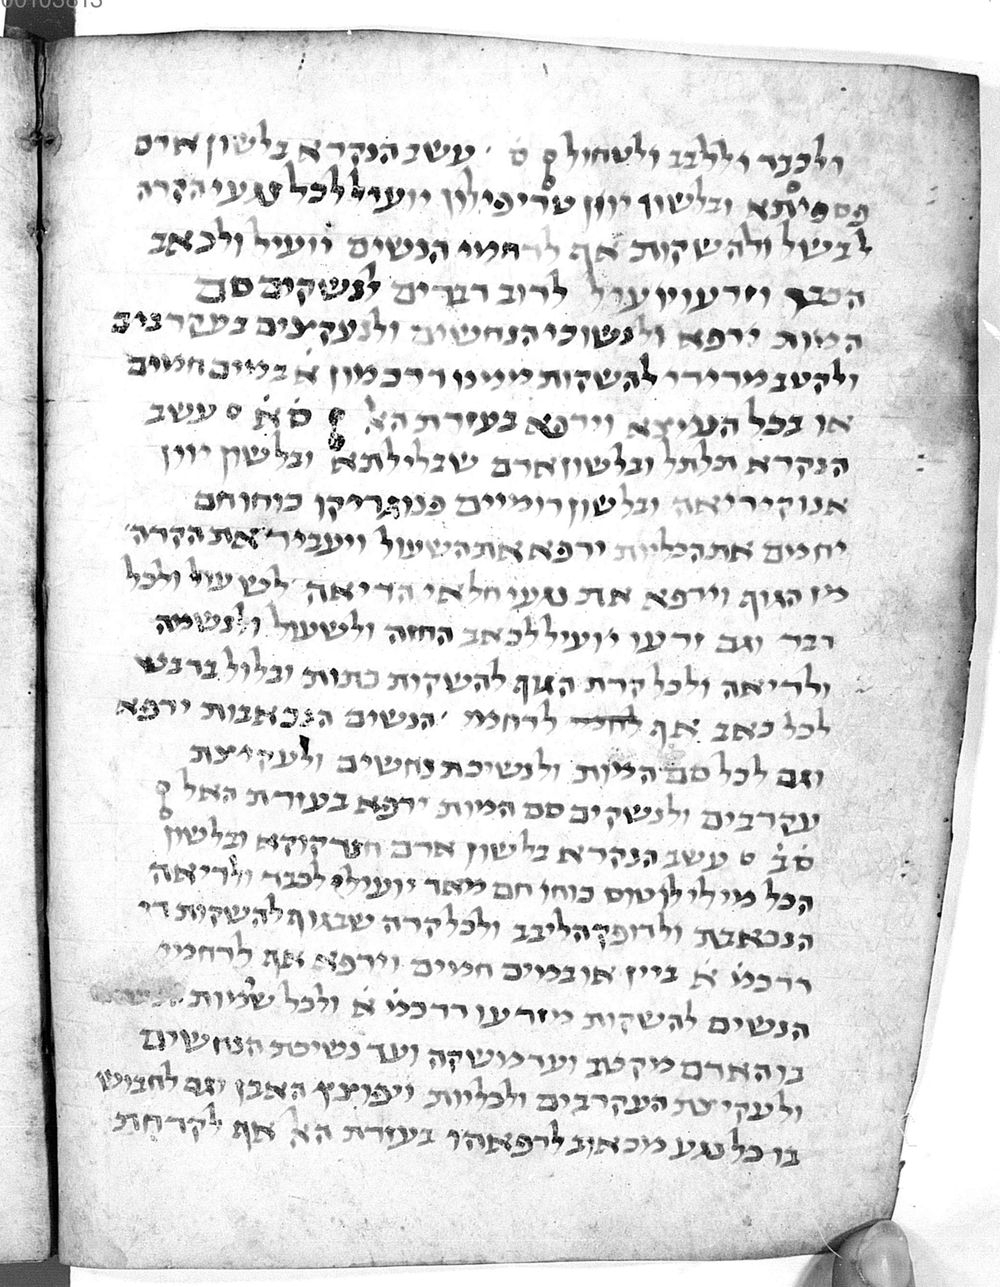 00105813
ולכבד וללבב ולטחול ס עשב הנקרא בלשון ארם
פספיתא ובלשון יוון טריפילון יועיל לכל נגעי הקרה
לבשל ולהשקות אף לרחמי הנשים יועיל ולכאב
הכבד וזרעו יועיל לרוב דברים לנשקים סם
המות ירפא ולנשוכי הנחשים ולנעקצים בעקרבים
ולקטב מרירי להשקות ממנו דרכמון א במים חמים
או בכל העיצא וירפא בעזרת הא סא עשב
הנקרא תלתל ובלשון ארם שבלילתא ובלשון יוון
אנוקיריאה ובלשון רומיים פנוגריקן כוחו חם
יחמם את הכליות ירפא את השעול ויעביר את הקרה
מן הגוף וירפא את נגעי חלאי הריאה לבשל ולכל
דבר וגם זרעו יועיל לכאב החזה ולשעול ולנשמה
ולריאה ולכל קרת הגוף להשקות כתות ובלול בדבש
לכל כאב אף לרחמי הנשים הנכאבות ירפא
וגם לכל סם המות ולנשיכת נחשים ולעקיצת
עקרבים ולנשקים סם המות ירפא בעזרת האל
סב עשב הנקרא בלשון ארם חנדקוקא ובלשון
הכל מילילוטוס כוחו חם מאד יועיל לכבד ולריאה
הנכאבת ולדופק הליבב ולכל קרה שבגוף להשקות די
דרכמ א ביין או במים חמים וירפא אף לרחמי
הנשים להשקות מזרעו דרכמ א ולכל שמיות
בו האדם מקטב ועד מושקה ועד נשיכת הנחשים
ולעקיצת העקרבים ולכליות ויפוצץ האבן וגם לחבוש
בו כל נגע מכאוב לרפאהו בעזרת הא אף לקדחת